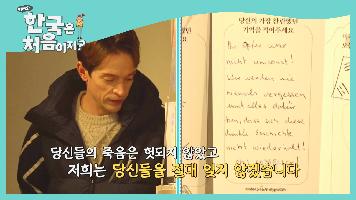 어서와~
한국은
처음이지?
당신의 가장 찬란했던
기억을 적어주세요
Ihr Opfer war
nicht umsonst!
Wir werden sie
niemals vergessen
und alles dafür
tun, dass sich diese
dunkle Geschichte
nicht wiederholt!
당신들의 죽음은 헛되지 않았고
저희는 당신들을 절대 잊지 않겠습니다